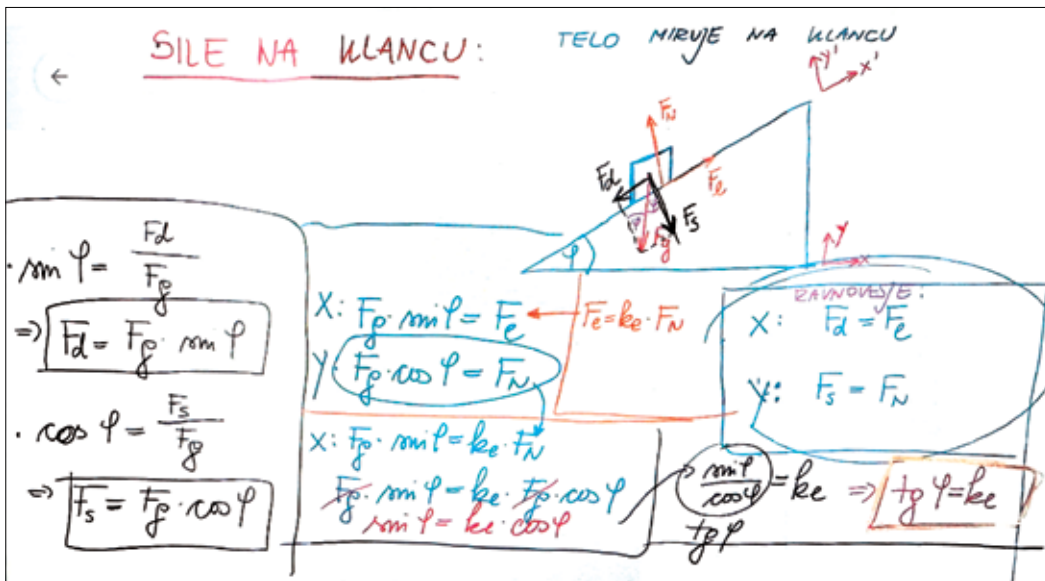 SILE NA KLANCU:
TELO MIRUJE NA KLANCU
←
y'
x'
F_N
F_d
F_e
F_s
F_g
φ
y
x
· sin φ = F_d / F_g
=> F_d = F_g · sin φ
· cos φ = F_s / F_g
=> F_s = F_g · cos φ
X: F_g · sin φ = F_e
Y: F_g · cos φ = F_N
F_e = k_e · F_N
X: F_g · sin φ = k_e · F_N
F_g · sin φ = k_e · F_g · cos φ
sin φ = k_e · cos φ
RAVNOVESJE:
X: F_d = F_e
Y: F_s = F_N
sin φ / cos φ = k_e => tg φ = k_e
tg φ